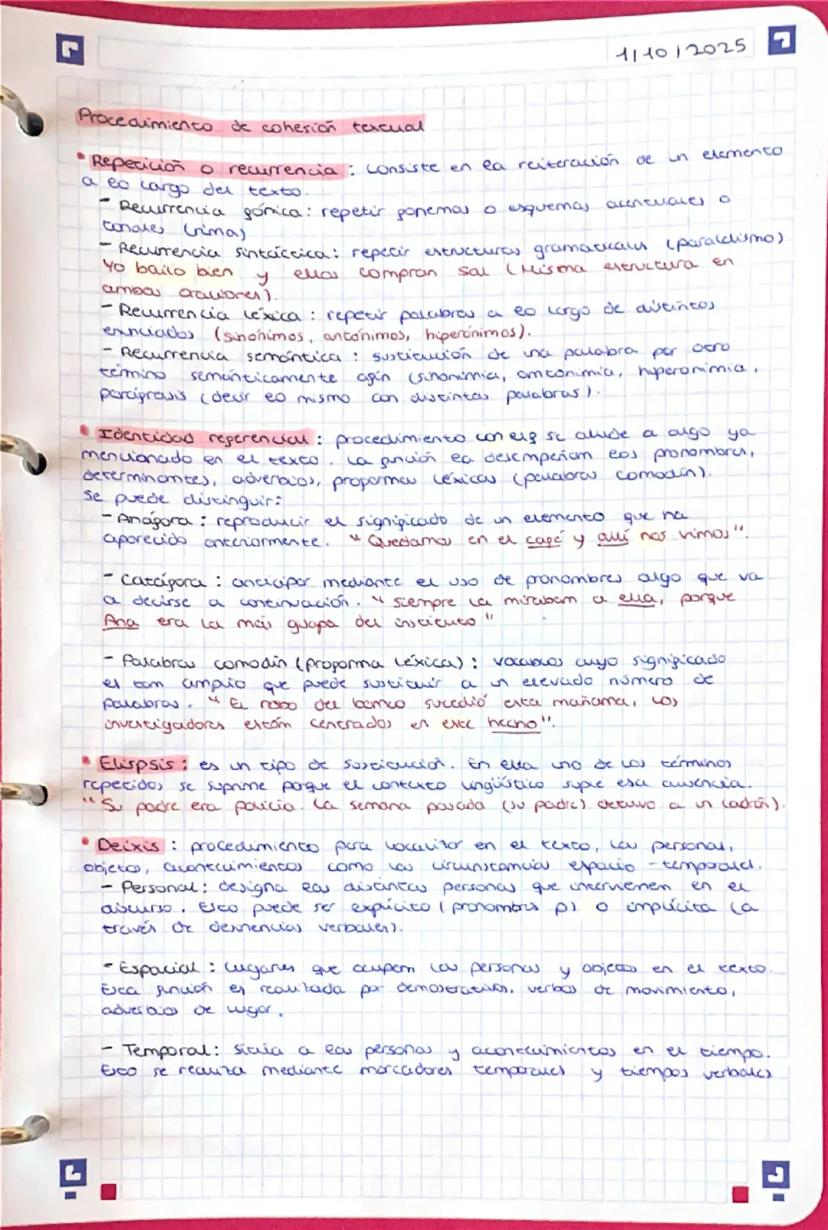 1/10/2025
Procedimiento de cohesión textual
• Repetición o recurrencia: consiste en la reiteración de un elemento
a lo largo del texto.
- Recurrencia fónica: repetir fonemas o esquemas acentuales o
tonales (rima)
- Recurrencia sintáctica: repetir estructuras gramaticales (paralelismo)
Yo bailo bien y ellos compran sal (Misma estructura en
ambas oraciones).
- Recurrencia léxica: repetir palabras a lo largo de distintos
enunciados (sinónimos, antónimos, hiperónimos).
- Recurrencia semántica: sustitución de una palabra por otro
término semánticamente afín (sinonimia, antonimia, hiperonimia,
paráfrasis (decir lo mismo con distintas palabras).
• Identidad referencial: procedimiento con el q se alude a algo ya
mencionado en el texto. La función la desempeñan los pronombres,
determinantes, adverbios, proformas léxicas (palabras comodín).
Se puede distinguir:
- Anáfora: reproducir el significado de un elemento que ha
aparecido anteriormente. "Quedamos en el café y allí nos vimos".
- Catáfora: anticipar mediante el uso de pronombres algo que va
a decirse a continuación. "Siempre la miraban a ella, porque
Ana era la más guapa del instituto"
- Palabras comodín (proforma léxica): vocablos cuyo significado
es tan amplio que puede sustituir a un elevado número de
palabras. "El robo del banco sucedió esta mañana, los
investigadores están centrados en este hecho".
• Elispsis: es un tipo de sustitución. En ella uno de los términos
repetidos se suprime porque el contexto lingüístico suple esa ausencia.
"Su padre era policía. La semana pasada (su padre) detuvo a un ladrón).
• Deixis: procedimiento para localizar en el texto, las personas,
objetos, acontecimientos como las circunstancias espacio-temporales.
- Personal: designa las distintas personas que intervienen en el
discurso. Esto puede ser explícito (pronombres p) o implícita (a
través de desinencias verbales).
- Espacial: lugares que ocupan las personas y objetos en el texto.
Esta función es realizada por demostrativos, verbos de movimiento,
adverbios de lugar.
- Temporal: sitúa a las personas y acontecimientos en el tiempo.
Esto se realiza mediante marcadores temporales y tiempos verbales